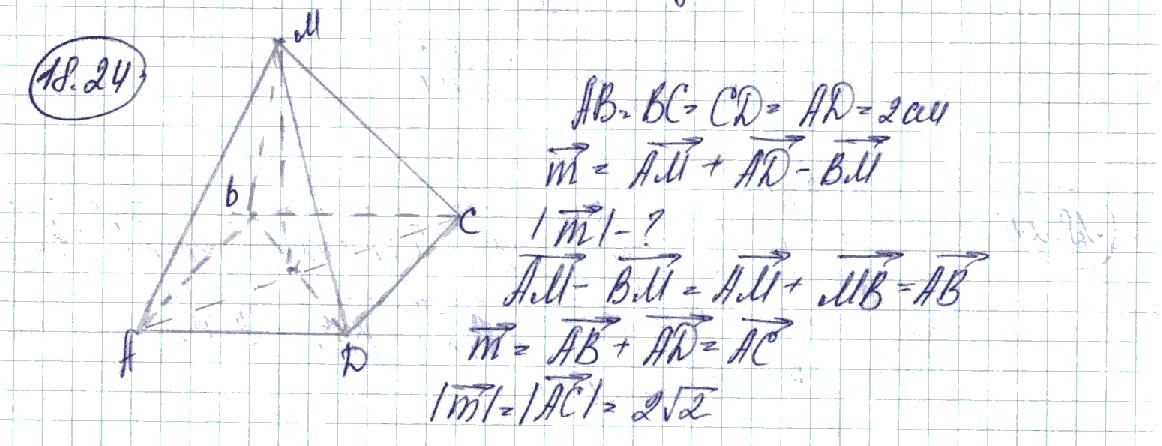 18.24
M
B
C
A
D
AB = BC = CD = AD = 2 см
m⃗ = AM⃗ + AD⃗ - BM⃗
|m⃗| - ?
AM⃗ - BM⃗ = AM⃗ + MB⃗ = AB⃗
m⃗ = AB⃗ + AD⃗ = AC⃗
|m⃗| = |AC⃗| = 2√2